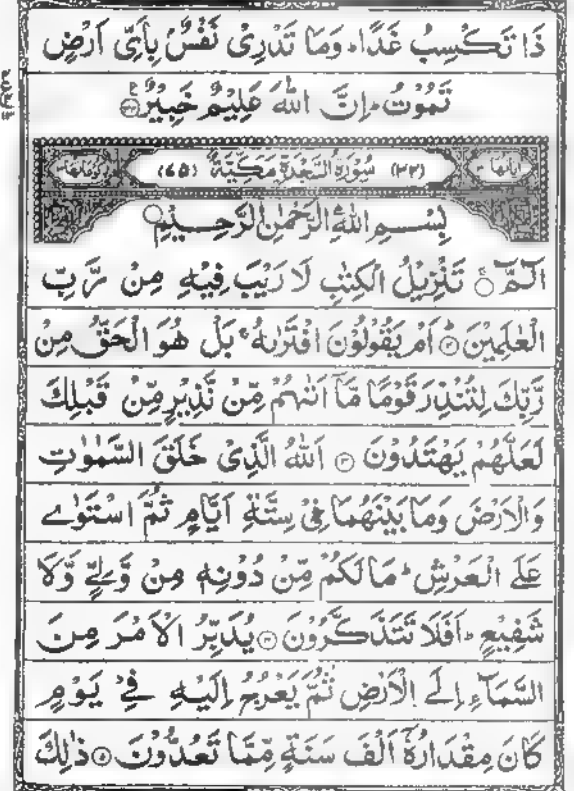 ذَا تَكْسِبُ غَدًا ؕ وَمَا تَدْرِىْ نَفْسٌۢ بِاَىِّ اَرْضٍ
تَمُوْتُ ؕ اِنَّ اللّٰهَ عَلِيْمٌ خَبِيْرٌ ۝۳۴
اٰيَاتُهَا ۳۰ (۳۲) سُوْرَةُ السَّجْدَةِ مَكِّيَّةٌ (۷۵) رُكُوْعَاتُهَا ۳
بِسْمِ اللّٰهِ الرَّحْمٰنِ الرَّحِيْمِ
الٓمّٓ ۝۱ تَنْزِيْلُ الْكِتٰبِ لَا رَيْبَ فِيْهِ مِنْ رَّبِّ
الْعٰلَمِيْنَ ۝۲ اَمْ يَقُوْلُوْنَ افْتَرٰىهُ ۚ بَلْ هُوَ الْحَقُّ مِنْ
رَّبِّكَ لِتُنْذِرَ قَوْمًا مَّآ اَتٰىهُمْ مِّنْ نَّذِيْرٍ مِّنْ قَبْلِكَ
لَعَلَّهُمْ يَهْتَدُوْنَ ۝۳ اَللّٰهُ الَّذِىْ خَلَقَ السَّمٰوٰتِ
وَالْاَرْضَ وَمَا بَيْنَهُمَا فِىْ سِتَّةِ اَيَّامٍ ثُمَّ اسْتَوٰى
عَلَى الْعَرْشِ ؕ مَا لَكُمْ مِّنْ دُوْنِهٖ مِنْ وَّلِىٍّ وَّلَا
شَفِيْعٍ ؕ اَفَلَا تَتَذَكَّرُوْنَ ۝۴ يُدَبِّرُ الْاَمْرَ مِنَ
السَّمَآءِ اِلَى الْاَرْضِ ثُمَّ يَعْرُجُ اِلَيْهِ فِىْ يَوْمٍ
كَانَ مِقْدَارُهٗۤ اَلْفَ سَنَةٍ مِّمَّا تَعُدُّوْنَ ۝۵ ذٰلِكَ